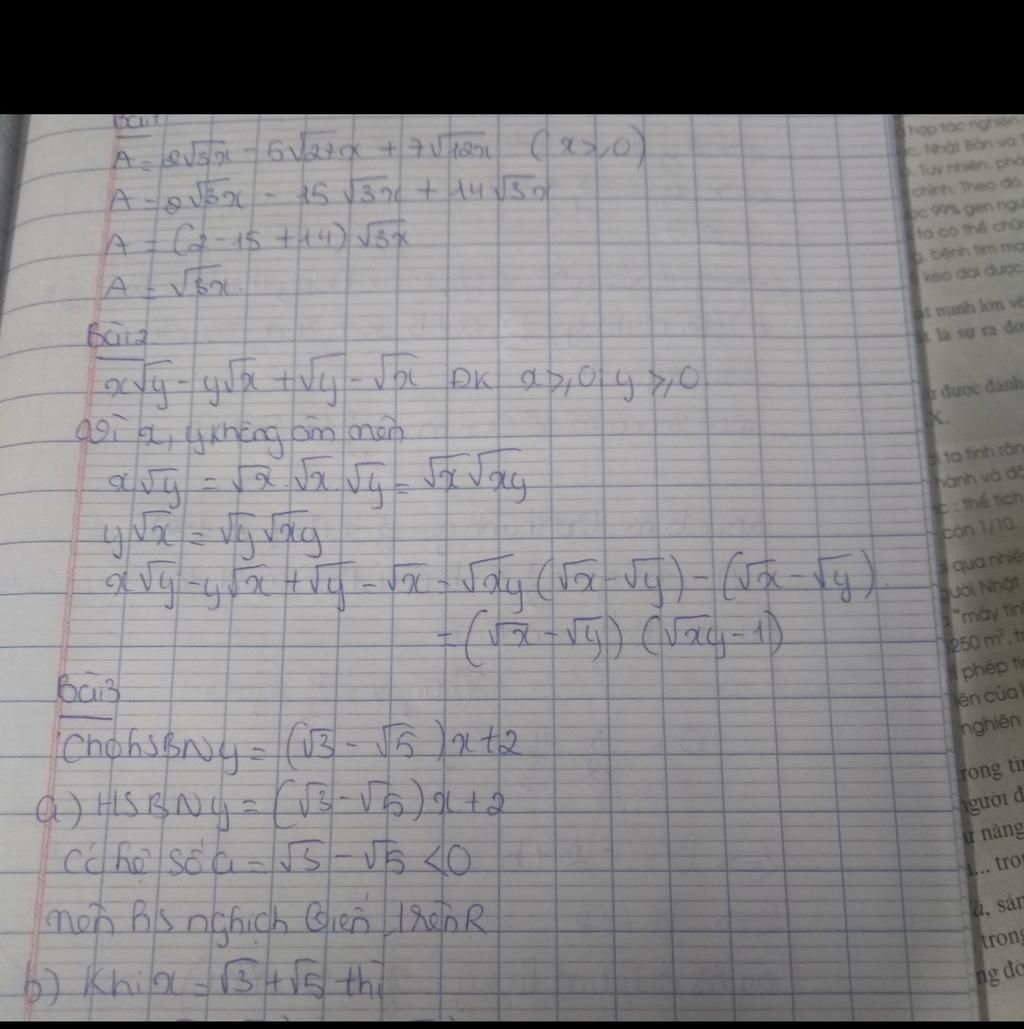 Bài 1
A = 2√3x - 5√27x + 7√12x ( x ≥ 0 )
A = 2√3x - 15√3x + 14√3x
A = (2 - 15 + 14) √3x
A = √3x
Bài 2
x√y - y√x + √y - √x ĐK x ≥ 0 y ≥ 0
Vì x, y không âm nên
x√y = √x . √x . √y = √x √xy
y√x = √y √xy
x√y - y√x + √y - √x = √xy (√x - √y) - (√x - √y)
= (√x - √y) (√xy - 1)
Bài 3
Cho hSBN y = (√3 - √5) x + 2
a) HSBN y = (√3 - √5) x + 2
Có hệ số a = √3 - √5 < 0
nên hs nghịch biến trên R
b) Khi x = √3 + √5 thì
hợp tác nghiên
c. Nhật Bản và
. Tuy nhiên, phả
chỉnh. Theo đó
99% gen ngu
ta có thể chữ
bệnh tim mạ
kéo dài được
minh lớn về
là sự ra đờ
được đánh
X.
ta tính rằn
hành và đ
: thể tích
còn 1/10.
qua nhiê
gười Nhật
"máy tín
250 m², tr
phép tí
lên của
nghiên
rong tì
gười đ
năng
... tro
sản
trong
ng đó